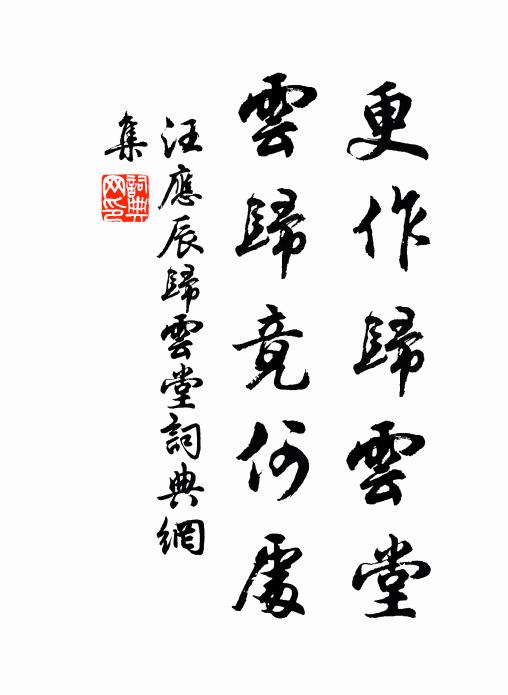 更作歸雲堂
雲歸竟何處
汪應辰歸雲堂詞典網
集
詞典网印